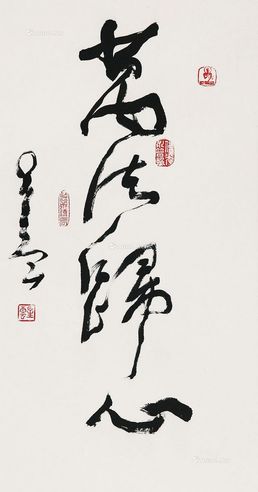 萬法歸心
星雲